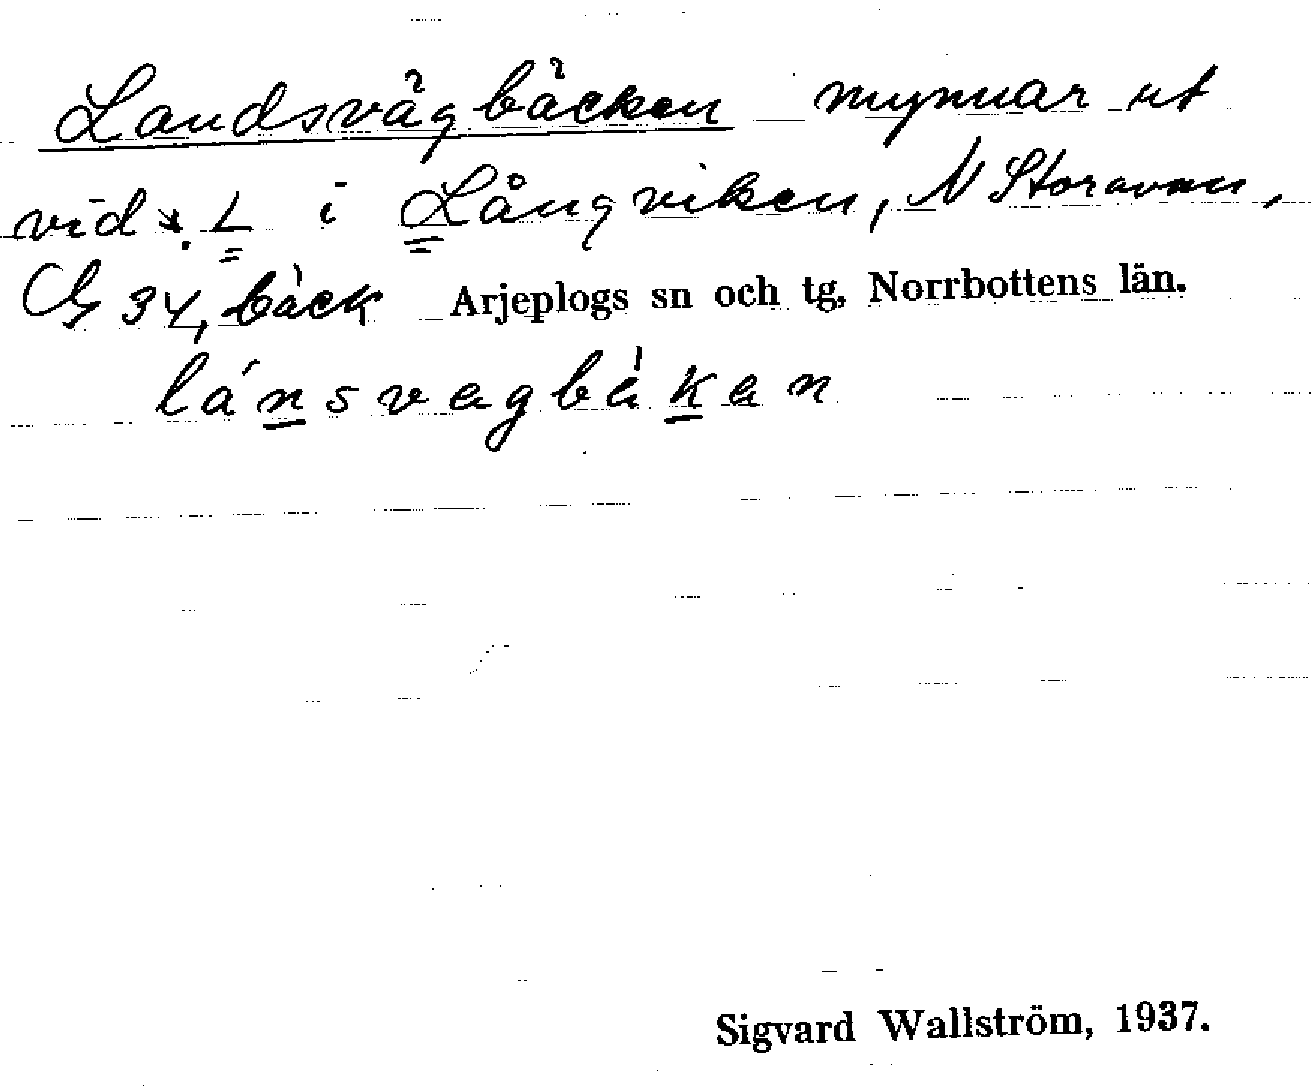 Landsvägbäcken mynnar ut
vid *. L i Långviken, N Storavan,
G 34, bäck Arjeplogs sn och tg, Norrbottens län.
lánsvegbèkan
Sigvard Wallström, 1937.